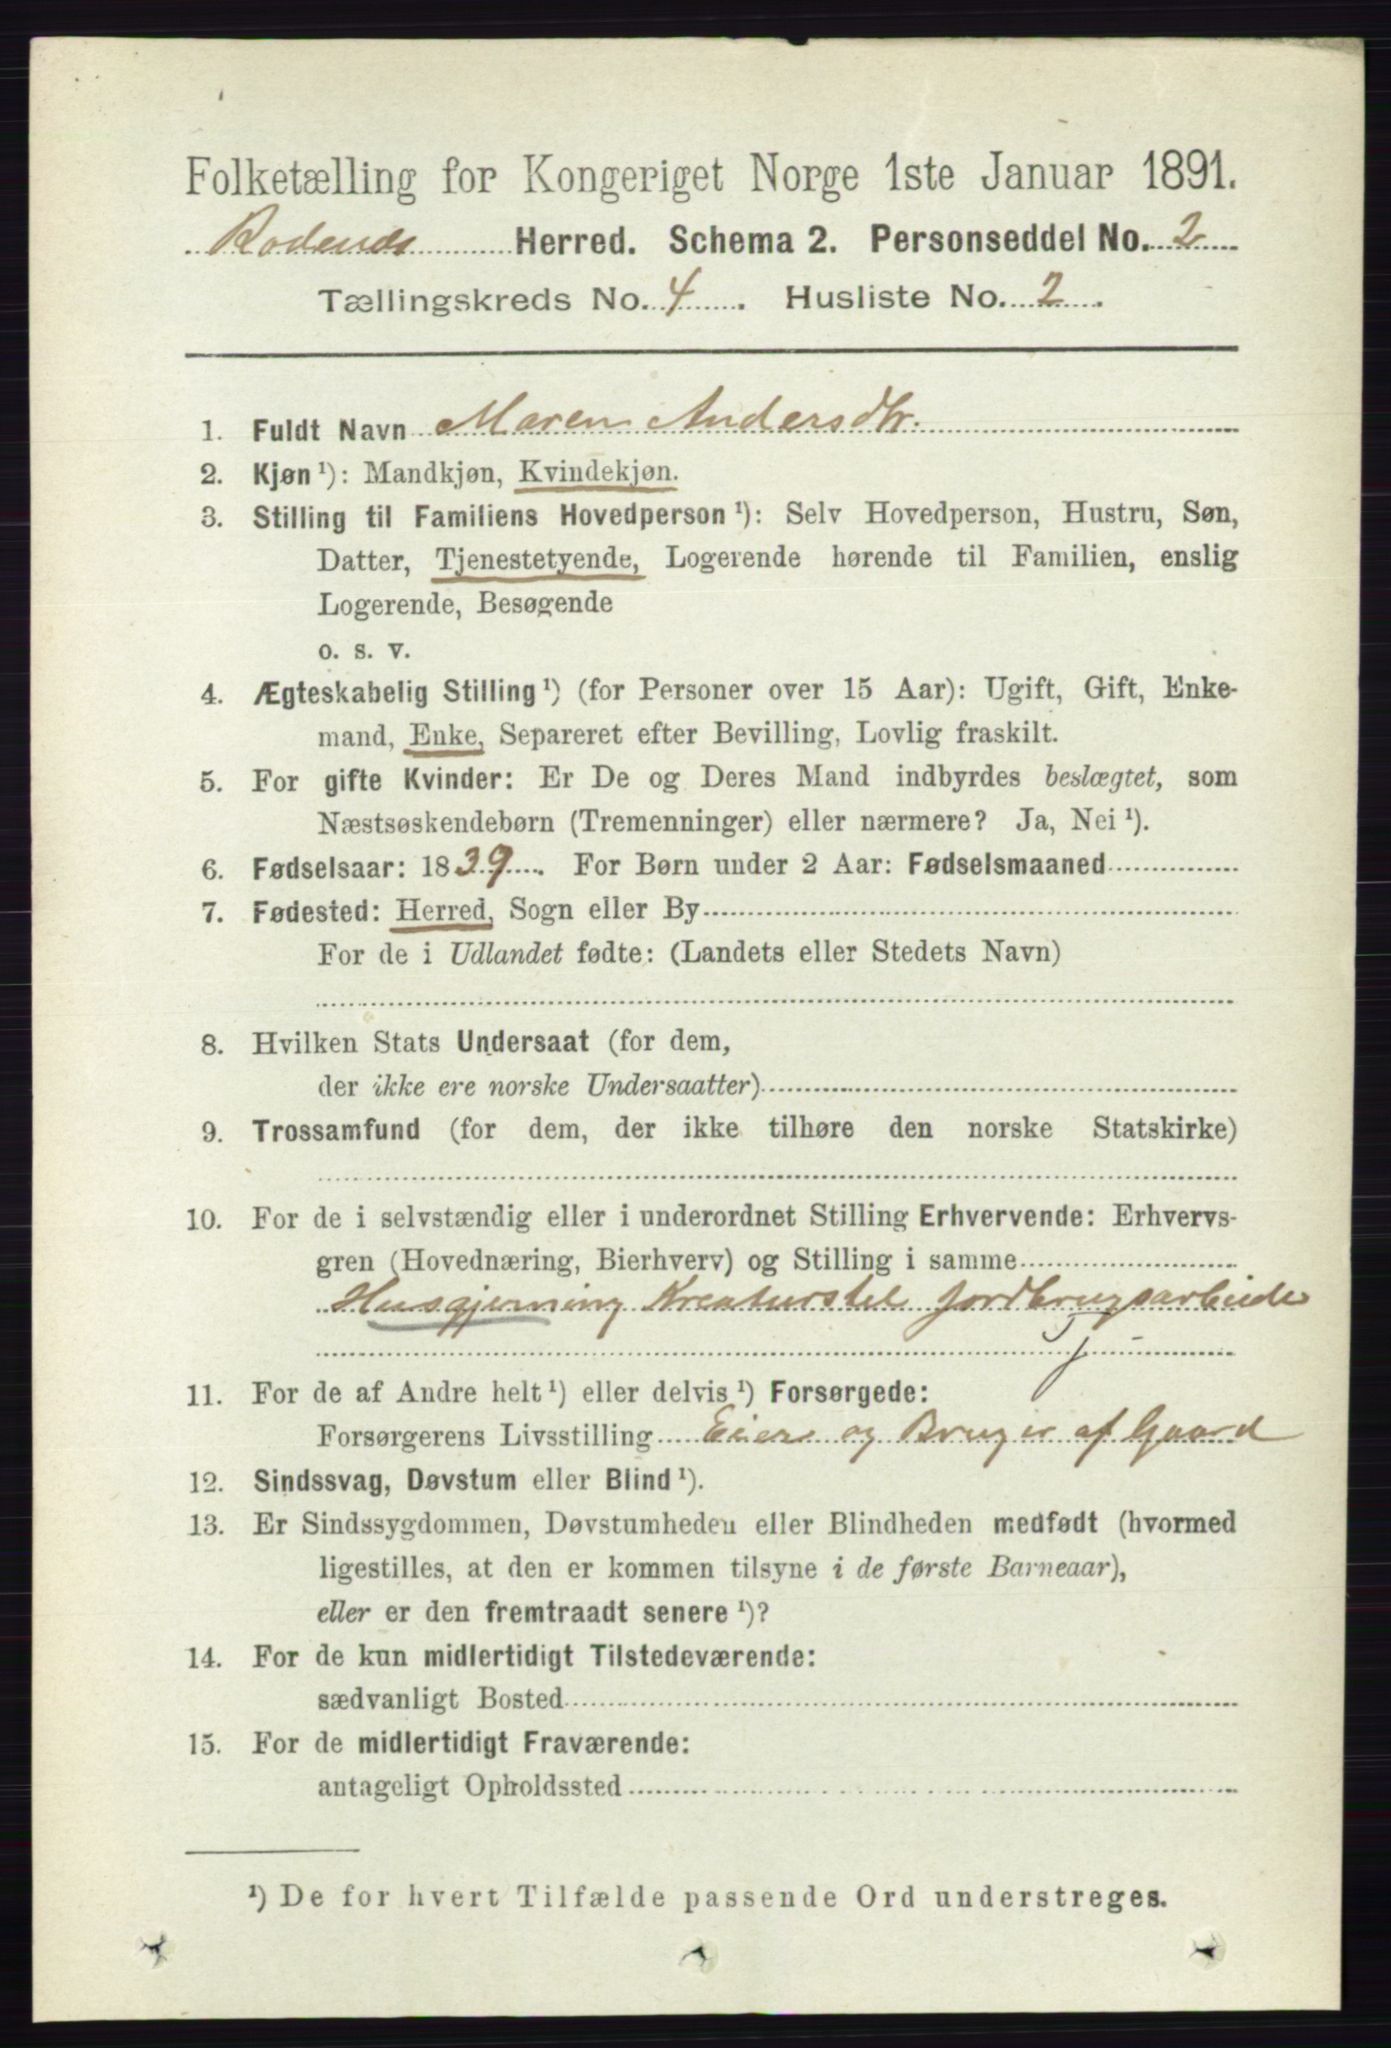 Folketælling for Kongeriget Norge 1ste Januar 1891.
Rodenes Herred. Schema 2. Personseddel No. 2
Tællingskreds No. 4. Husliste No. 2.
1. Fuldt Navn Maren Andersdtr.
2. Kjøn ¹): Mandkjøn, Kvindekjøn.
3. Stilling til Familiens Hovedperson ¹): Selv Hovedperson, Hustru, Søn,
Datter, Tjenestetyende, Logerende hørende til Familien, enslig
Logerende, Besøgende
o. s. v.
4. Ægteskabelig Stilling ¹) (for Personer over 15 Aar): Ugift, Gift, Enke-
mand, Enke, Separeret efter Bevilling, Lovlig fraskilt.
5. For gifte Kvinder: Er De og Deres Mand indbyrdes beslægtet, som
Næstsøskendebørn (Tremenninger) eller nærmere? Ja, Nei ¹).
6. Fødselsaar: 1839. For Børn under 2 Aar: Fødselsmaaned
7. Fødested: Herred, Sogn eller By
For de i Udlandet fødte: (Landets eller Stedets Navn)
8. Hvilken Stats Undersaat (for dem,
der ikke ere norske Undersaatter)
9. Trossamfund (for dem, der ikke tilhøre den norske Statskirke)
10. For de i selvstændig eller i underordnet Stilling Erhvervende: Erhvervs-
gren (Hovednæring, Bierhverv) og Stilling i samme
Husgjerning Kreaturstel Jordbrugsarbeide
11. For de af Andre helt ¹) eller delvis ¹) Forsørgede:
Forsørgerens Livsstilling Eier og Bruger af Gaard
12. Sindssvag, Døvstum eller Blind ¹).
13. Er Sindssygdommen, Døvstumheden eller Blindheden medfødt (hvormed
ligestilles, at den er kommen tilsyne i de første Barneaar),
eller er den fremtraadt senere ¹)?
14. For de kun midlertidigt Tilstedeværende:
sædvanligt Bosted
15. For de midlertidigt Fraværende:
antageligt Opholdssted
¹) De for hvert Tilfælde passende Ord understreges.